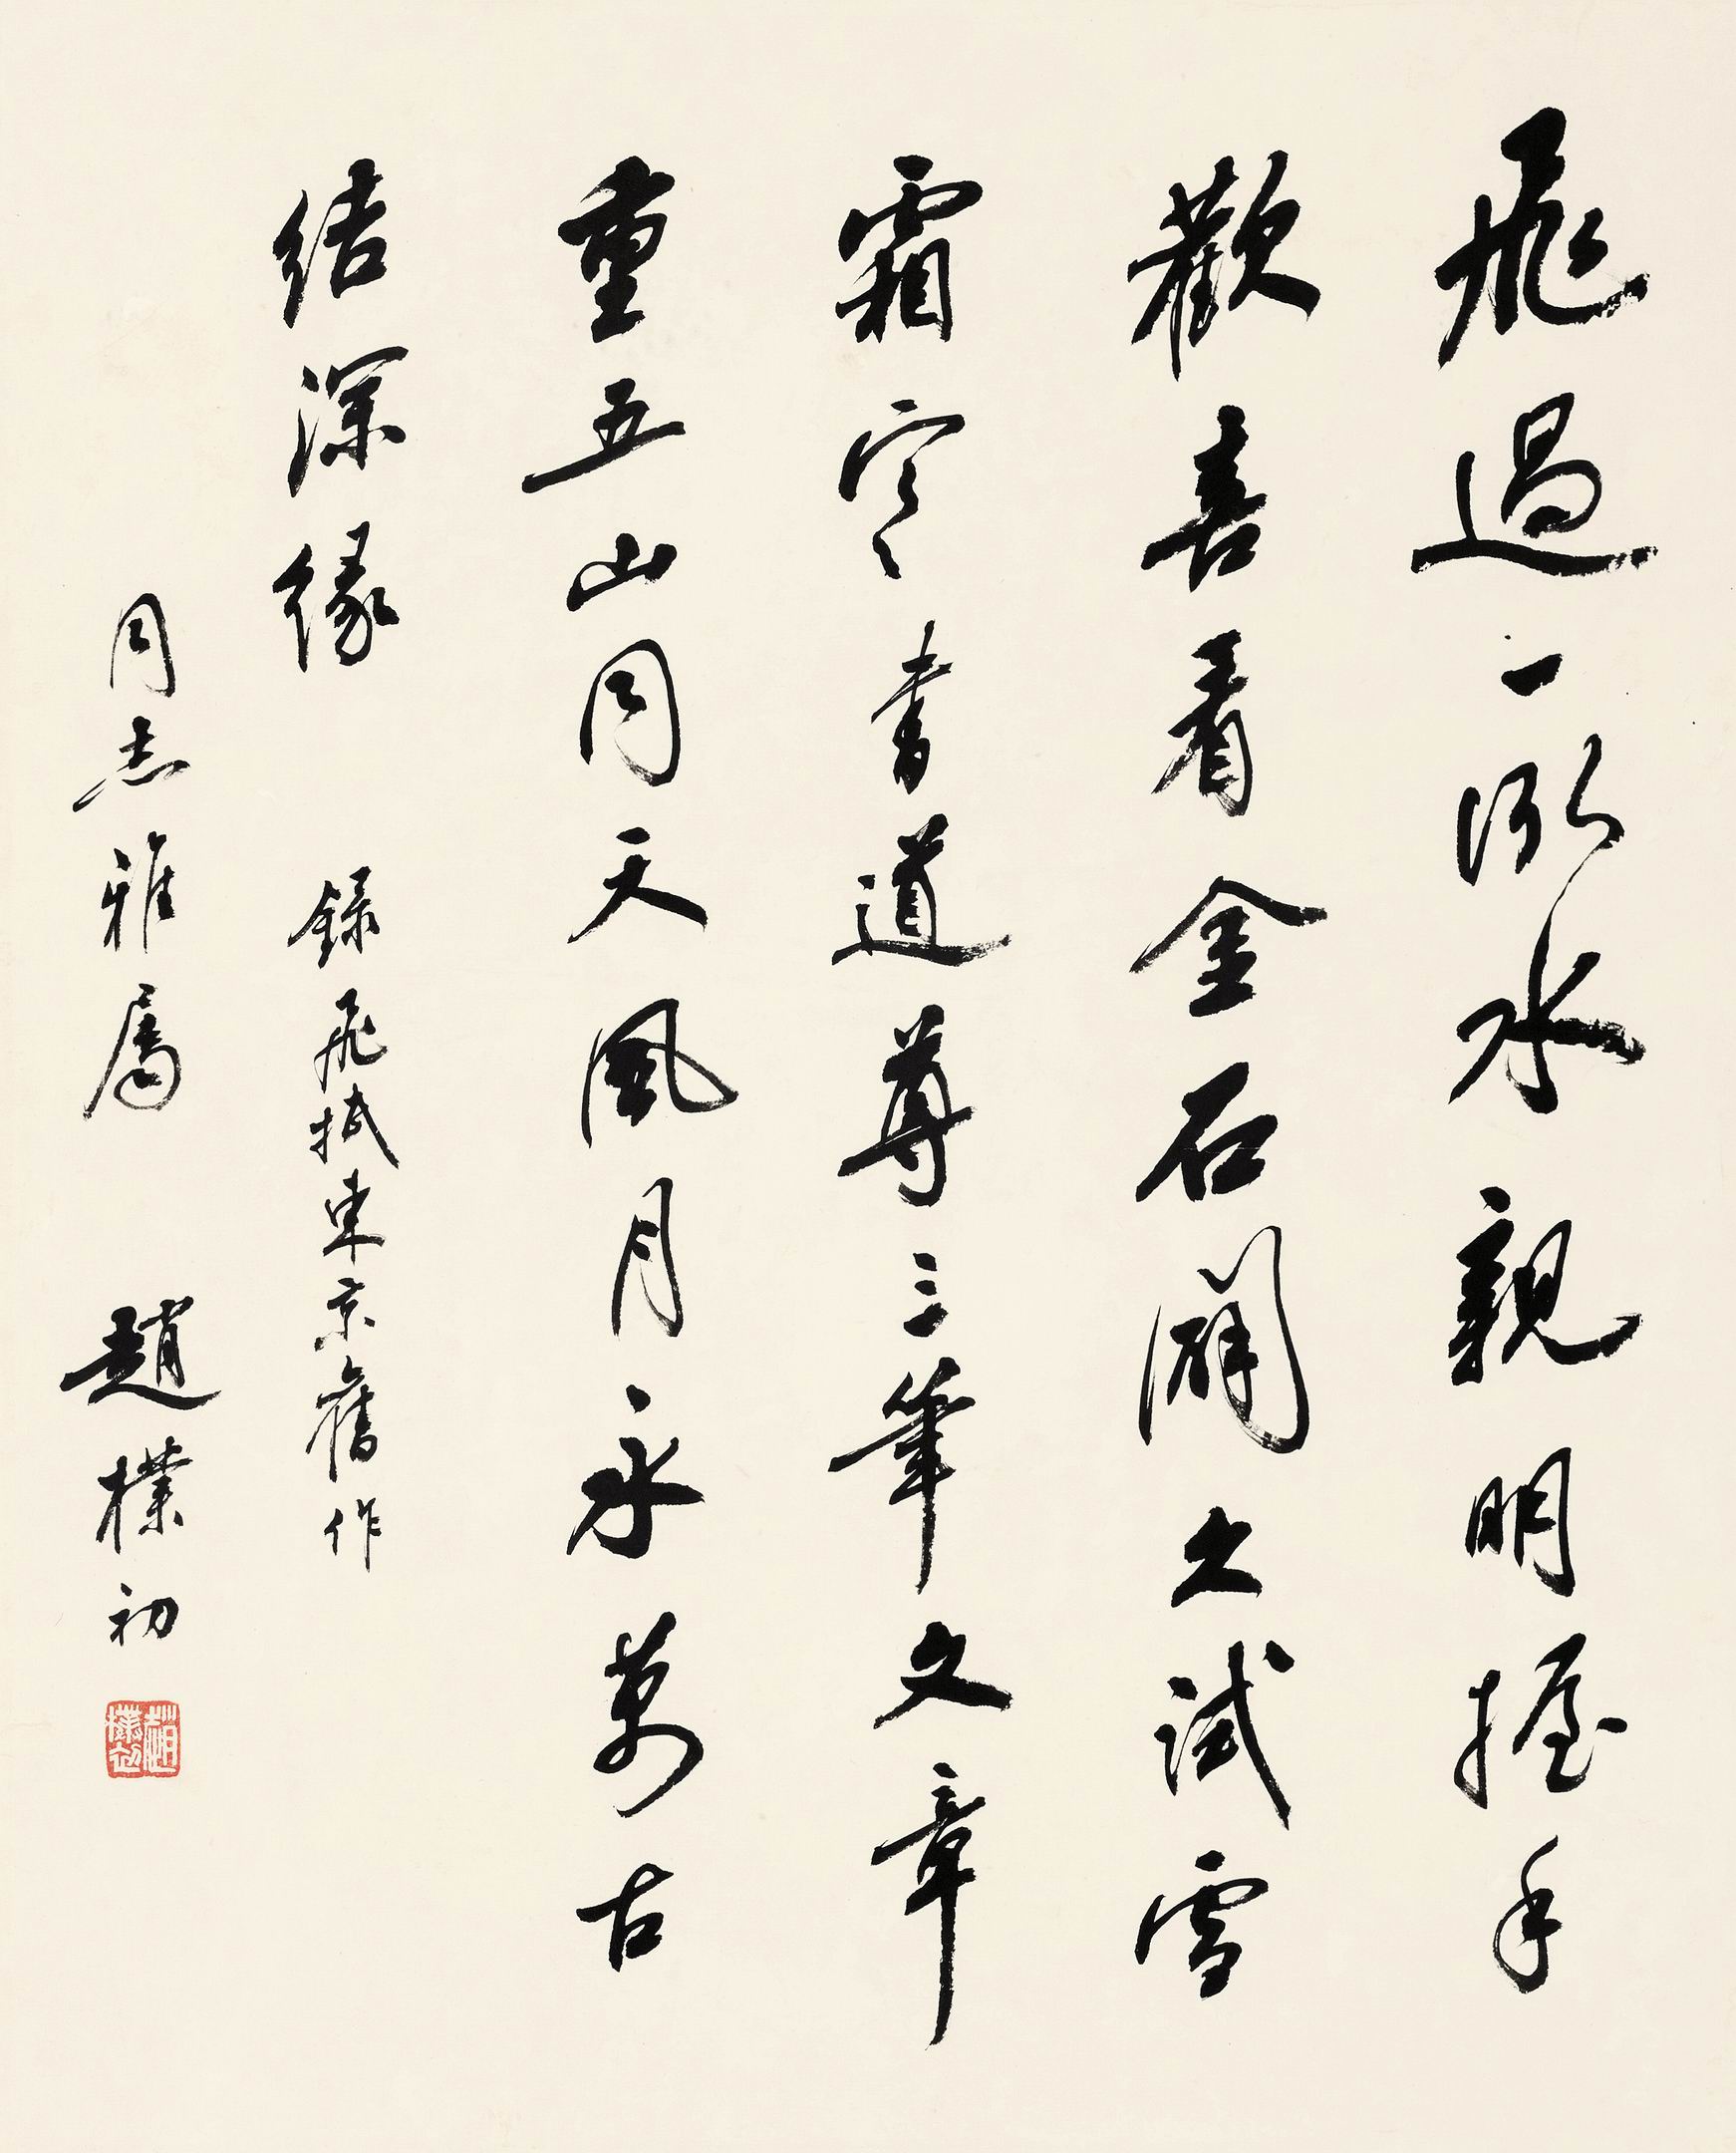 飛過一泓水親朋握手
歡喜看金石闢久試雪
霜寒書道尊三筆文章
重五山同天風月永萬古
结深緣 錄飛抵東京舊作
同志雅屬 趙樸初
趙樸初